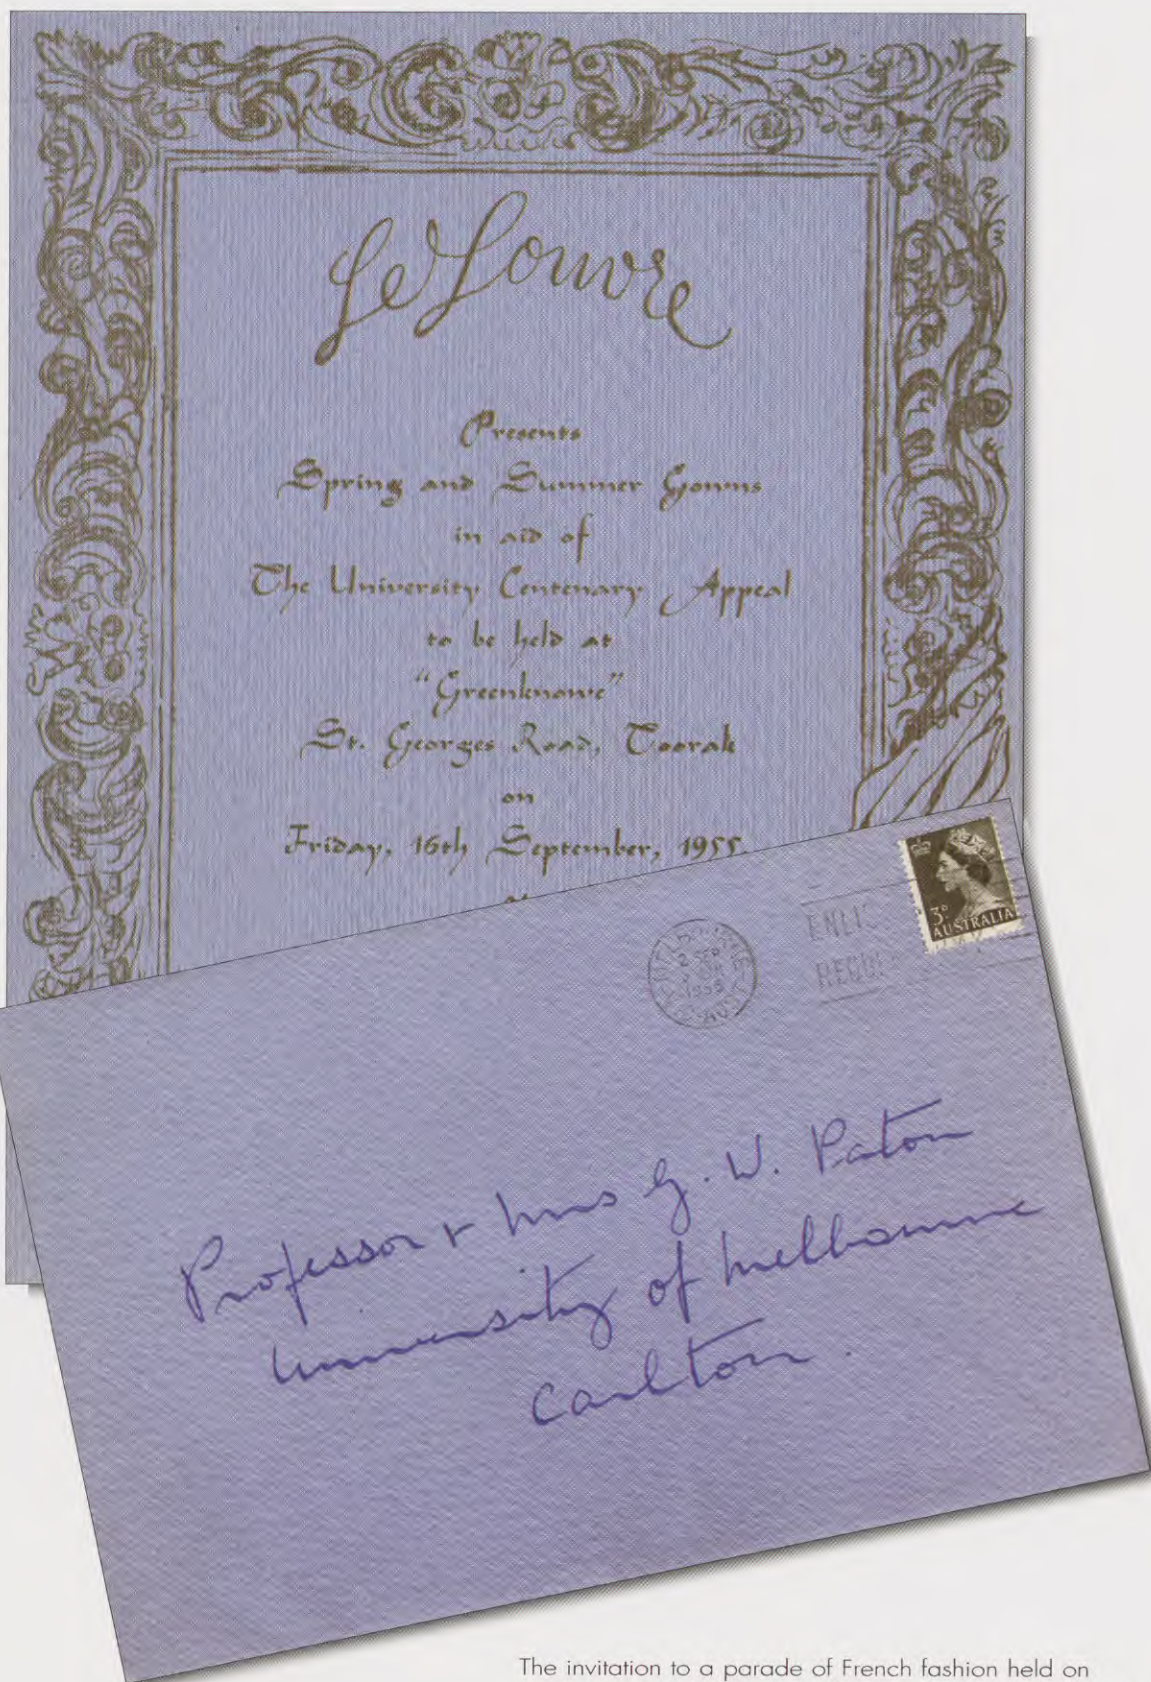 Le Louvre
Presents
Spring and Summer Gowns
in aid of
The University Centenary Appeal
to be held at
“Greenknowe”
St. Georges Road, Toorak
on
Friday, 16th September, 1955
3D
AUSTRALIA
MELBOURNE
2 SEP
1955
Professor + Mrs G. W. Paton
University of Melbourne
Carlton.
The invitation to a parade of French fashion held on